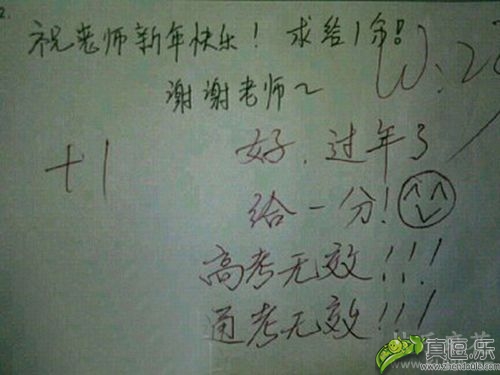 2.
祝老师新年快乐！求给1分!!
谢谢老师~
+1
好，过年了
给一分！
高考无效！！！
通考无效！！！
真逗乐
www.zhendoule.com